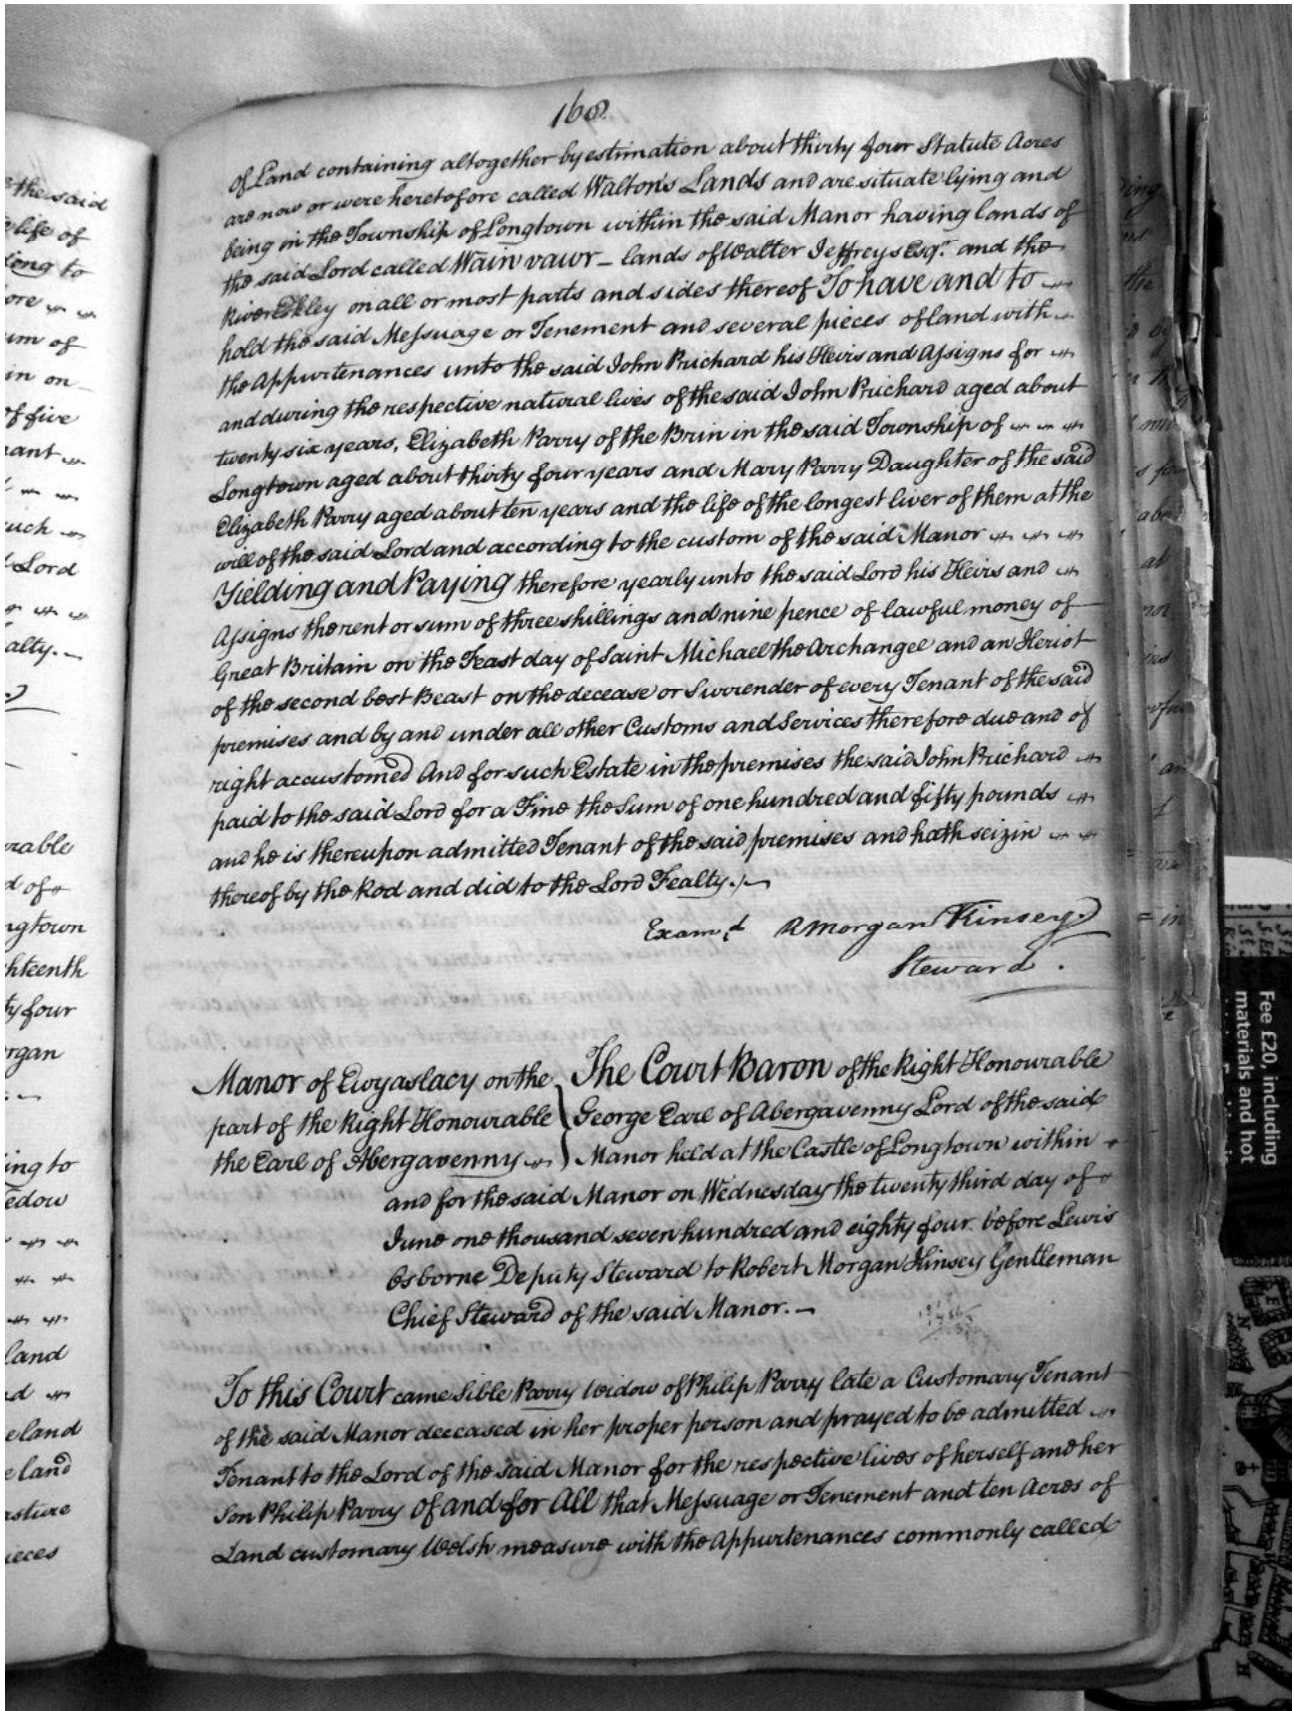 168
of Land containing altogether by estimation about thirty four Statute Acres
are now or were heretofore called Walton's Lands and are situate lying and
being in the Township of Longtown within the said Manor having lands of
the said Lord called Wain vawr - lands of Walter Jeffreys Esqr. and the
River Eskley on all or most parts and sides thereof To have and to
hold the said Messuage or Tenement and several pieces of land with
the Appurtenances unto the said John Prichard his Heirs and Assigns for
and during the respective natural lives of the said John Prichard aged about
twenty six years, Elizabeth Parry of the Brin in the said Township of
Longtown aged about thirty four years and Mary Parry Daughter of the said
Elizabeth Parry aged about ten years and the life of the longest liver of them at the
will of the said Lord and according to the custom of the said Manor
Yielding and Paying therefore yearly unto the said Lord his Heirs and
Assigns the rent or sum of three shillings and nine pence of lawful money of
Great Britain on the Feast day of Saint Michael the Archangel and an Heriot
of the second best Beast on the decease or Surrender of every Tenant of the said
premises and by and under all other Customs and Services therefore due and of
right accustomed And for such Estate in the premises the said John Prichard
paid to the said Lord for a Fine the Sum of one hundred and fifty pounds
and he is thereupon admitted Tenant of the said premises and hath seizin
thereof by the Rod and did to the Lord Fealty.
Examd. R Morgan Kinsey
Steward.
Manor of Ewyaslacy on the
part of the Right Honourable
the Earl of Abergavenny
The Court Baron of the Right Honourable
George Earl of Abergavenny Lord of the said
Manor held at the Castle of Longtown within
and for the said Manor on Wednesday the twenty third day of
June one thousand seven hundred and eighty four before Lewis
Osborne Deputy Steward to Robert Morgan Kinsey Gentleman
Chief Steward of the said Manor. -
To this Court came Sible Parry Widow of Philip Parry late a Customary Tenant
of the said Manor deceased in her proper person and prayed to be admitted
Tenant to the Lord of the said Manor for the respective lives of herself and her
Son Philip Parry Of and for All that Messuage or Tenement and ten Acres of
Land customary Welsh measure with the Appurtenances commonly called
the said
life of
ore
um of
in on
of five
nant
uch
Lord
alty.
rable
d of
ngtown
hteenth
ty four
organ
ing to
edow
land
d
e land
e land
asture
ieces
Fee £20, including
materials and hot